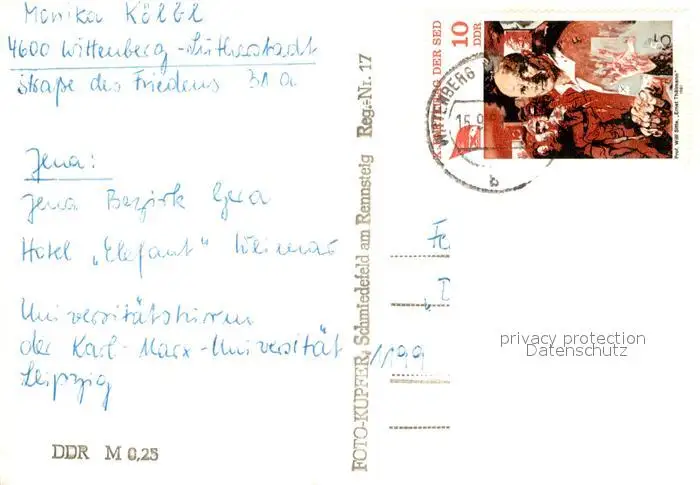 Monika Kölbl
4600 Wittenberg-Lutherstadt
Straße des Friedens 31a
Jena:
Jena Bezirk Gera
Hotel „Elefant" Weimar
Universitätsturm
der Karl-Marx-Universität
Leipzig
DDR M 0,25
FOTO-KUPFER, Schmiedefeld am Rennsteig Reg.-Nr. 17
PARTEITAG DER SED
10
DDR
Prof. Willi Sitte, „Ernst Thälmann"
WITTENBERG
15.9
a
Fe
„D
/199
privacy protection
Datenschutz